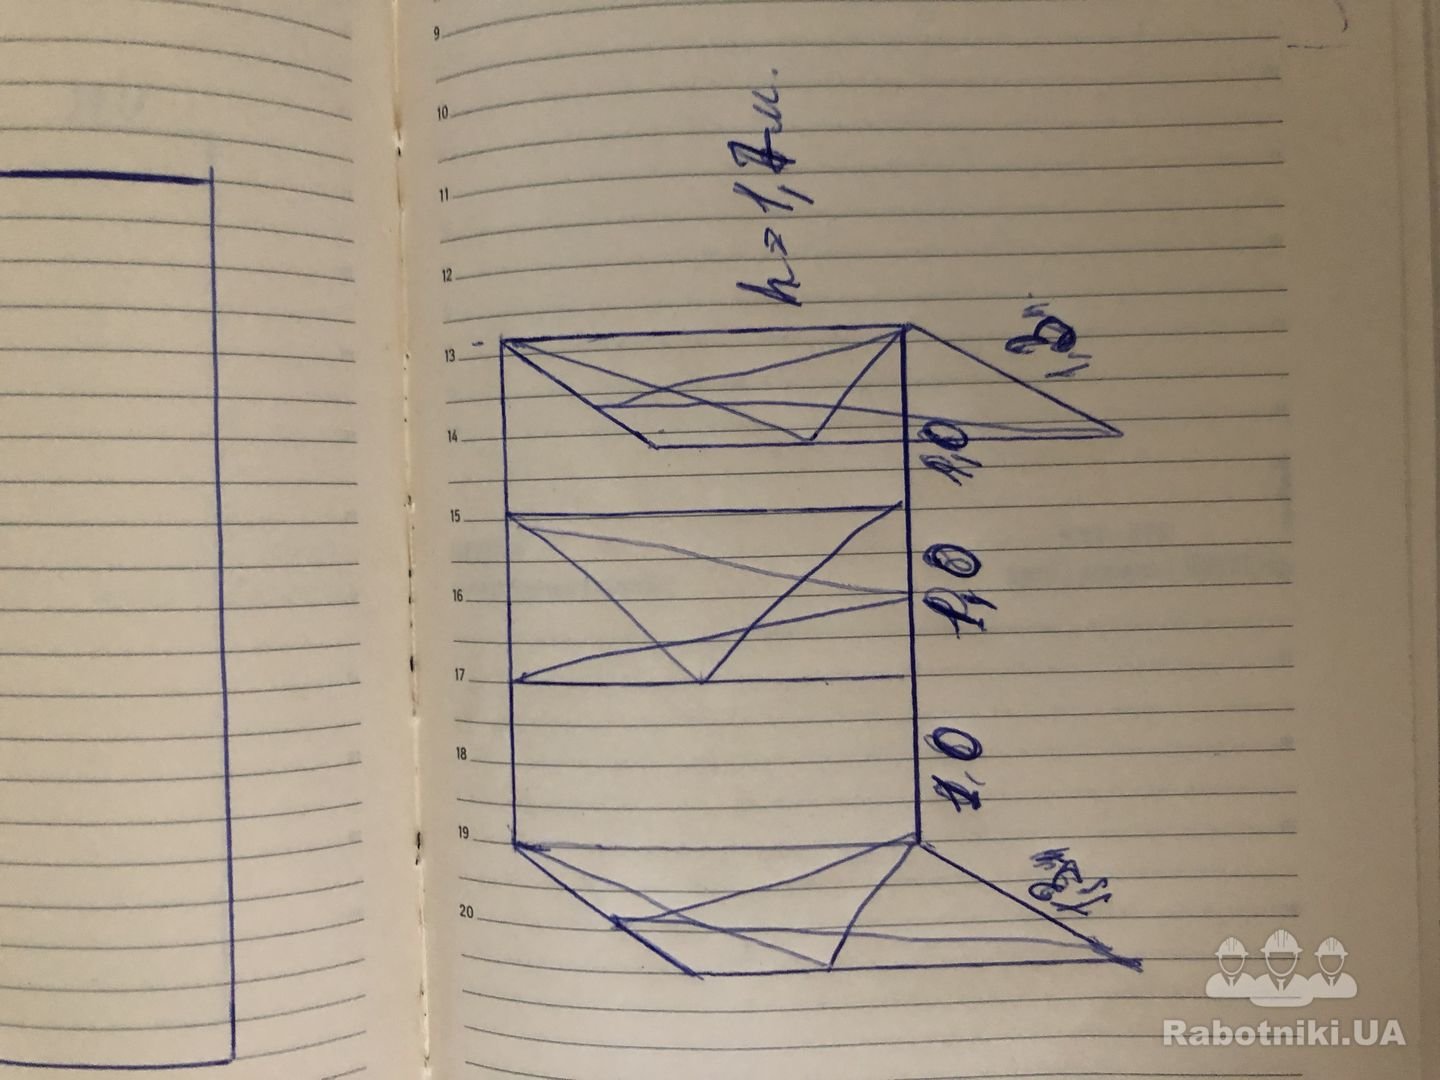 9
10
11
12
13
14
15
16
17
18
19
20
h = 1,7 м.
1,0
1,0
1,0
Rabotniki.UA